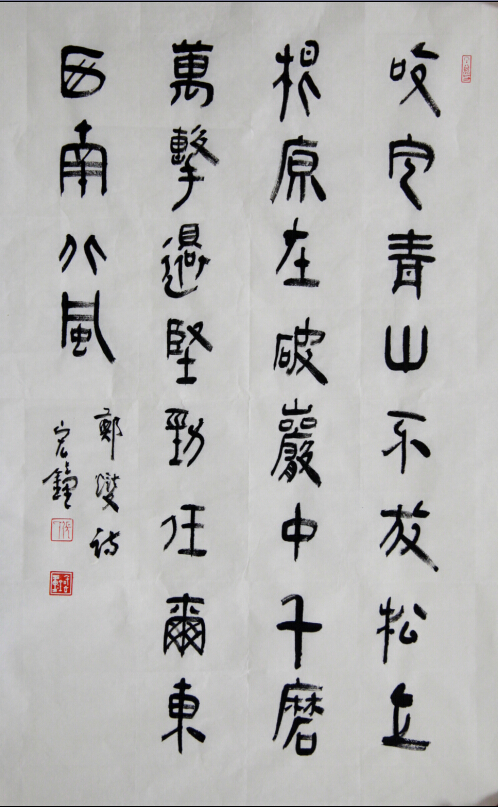 咬定青山不放松立
根原在破巖中千磨
萬擊還堅勁任爾東
西南北風
鄭燮詩
宏鐘